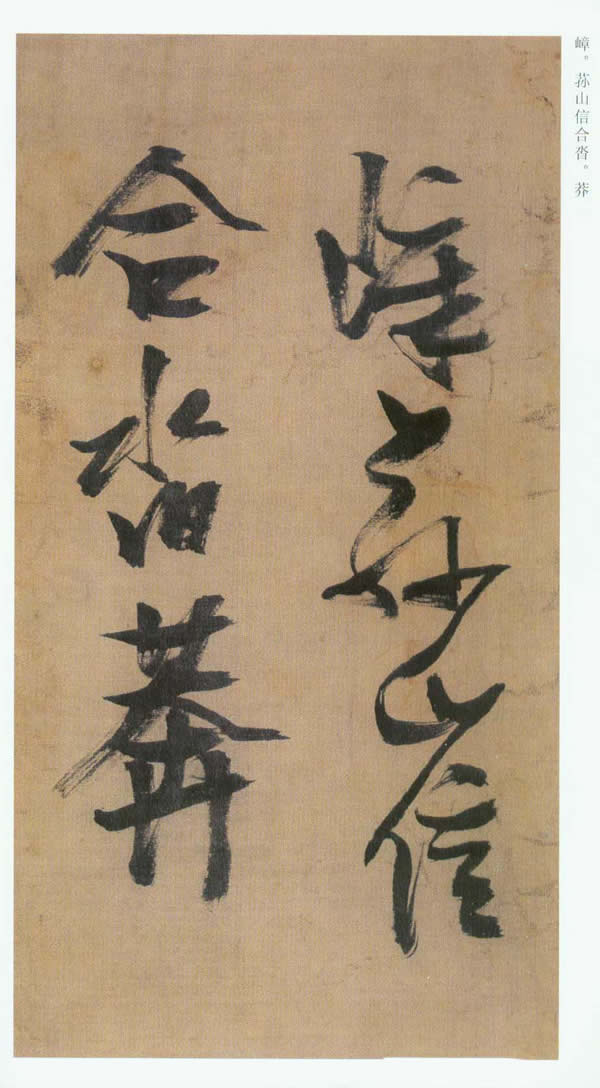 嶂。荪山信合沓。莽
嶂荪山信
合沓莽